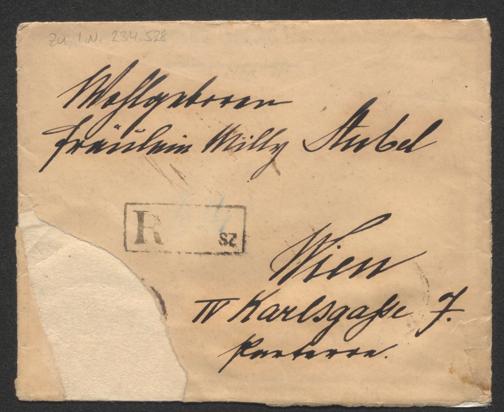 Zu I.N. 234.528
Wohlgeboren
Fräulein Milly Stubel
R 28
Wien
IV Karlsgaße 7.
Parterre.